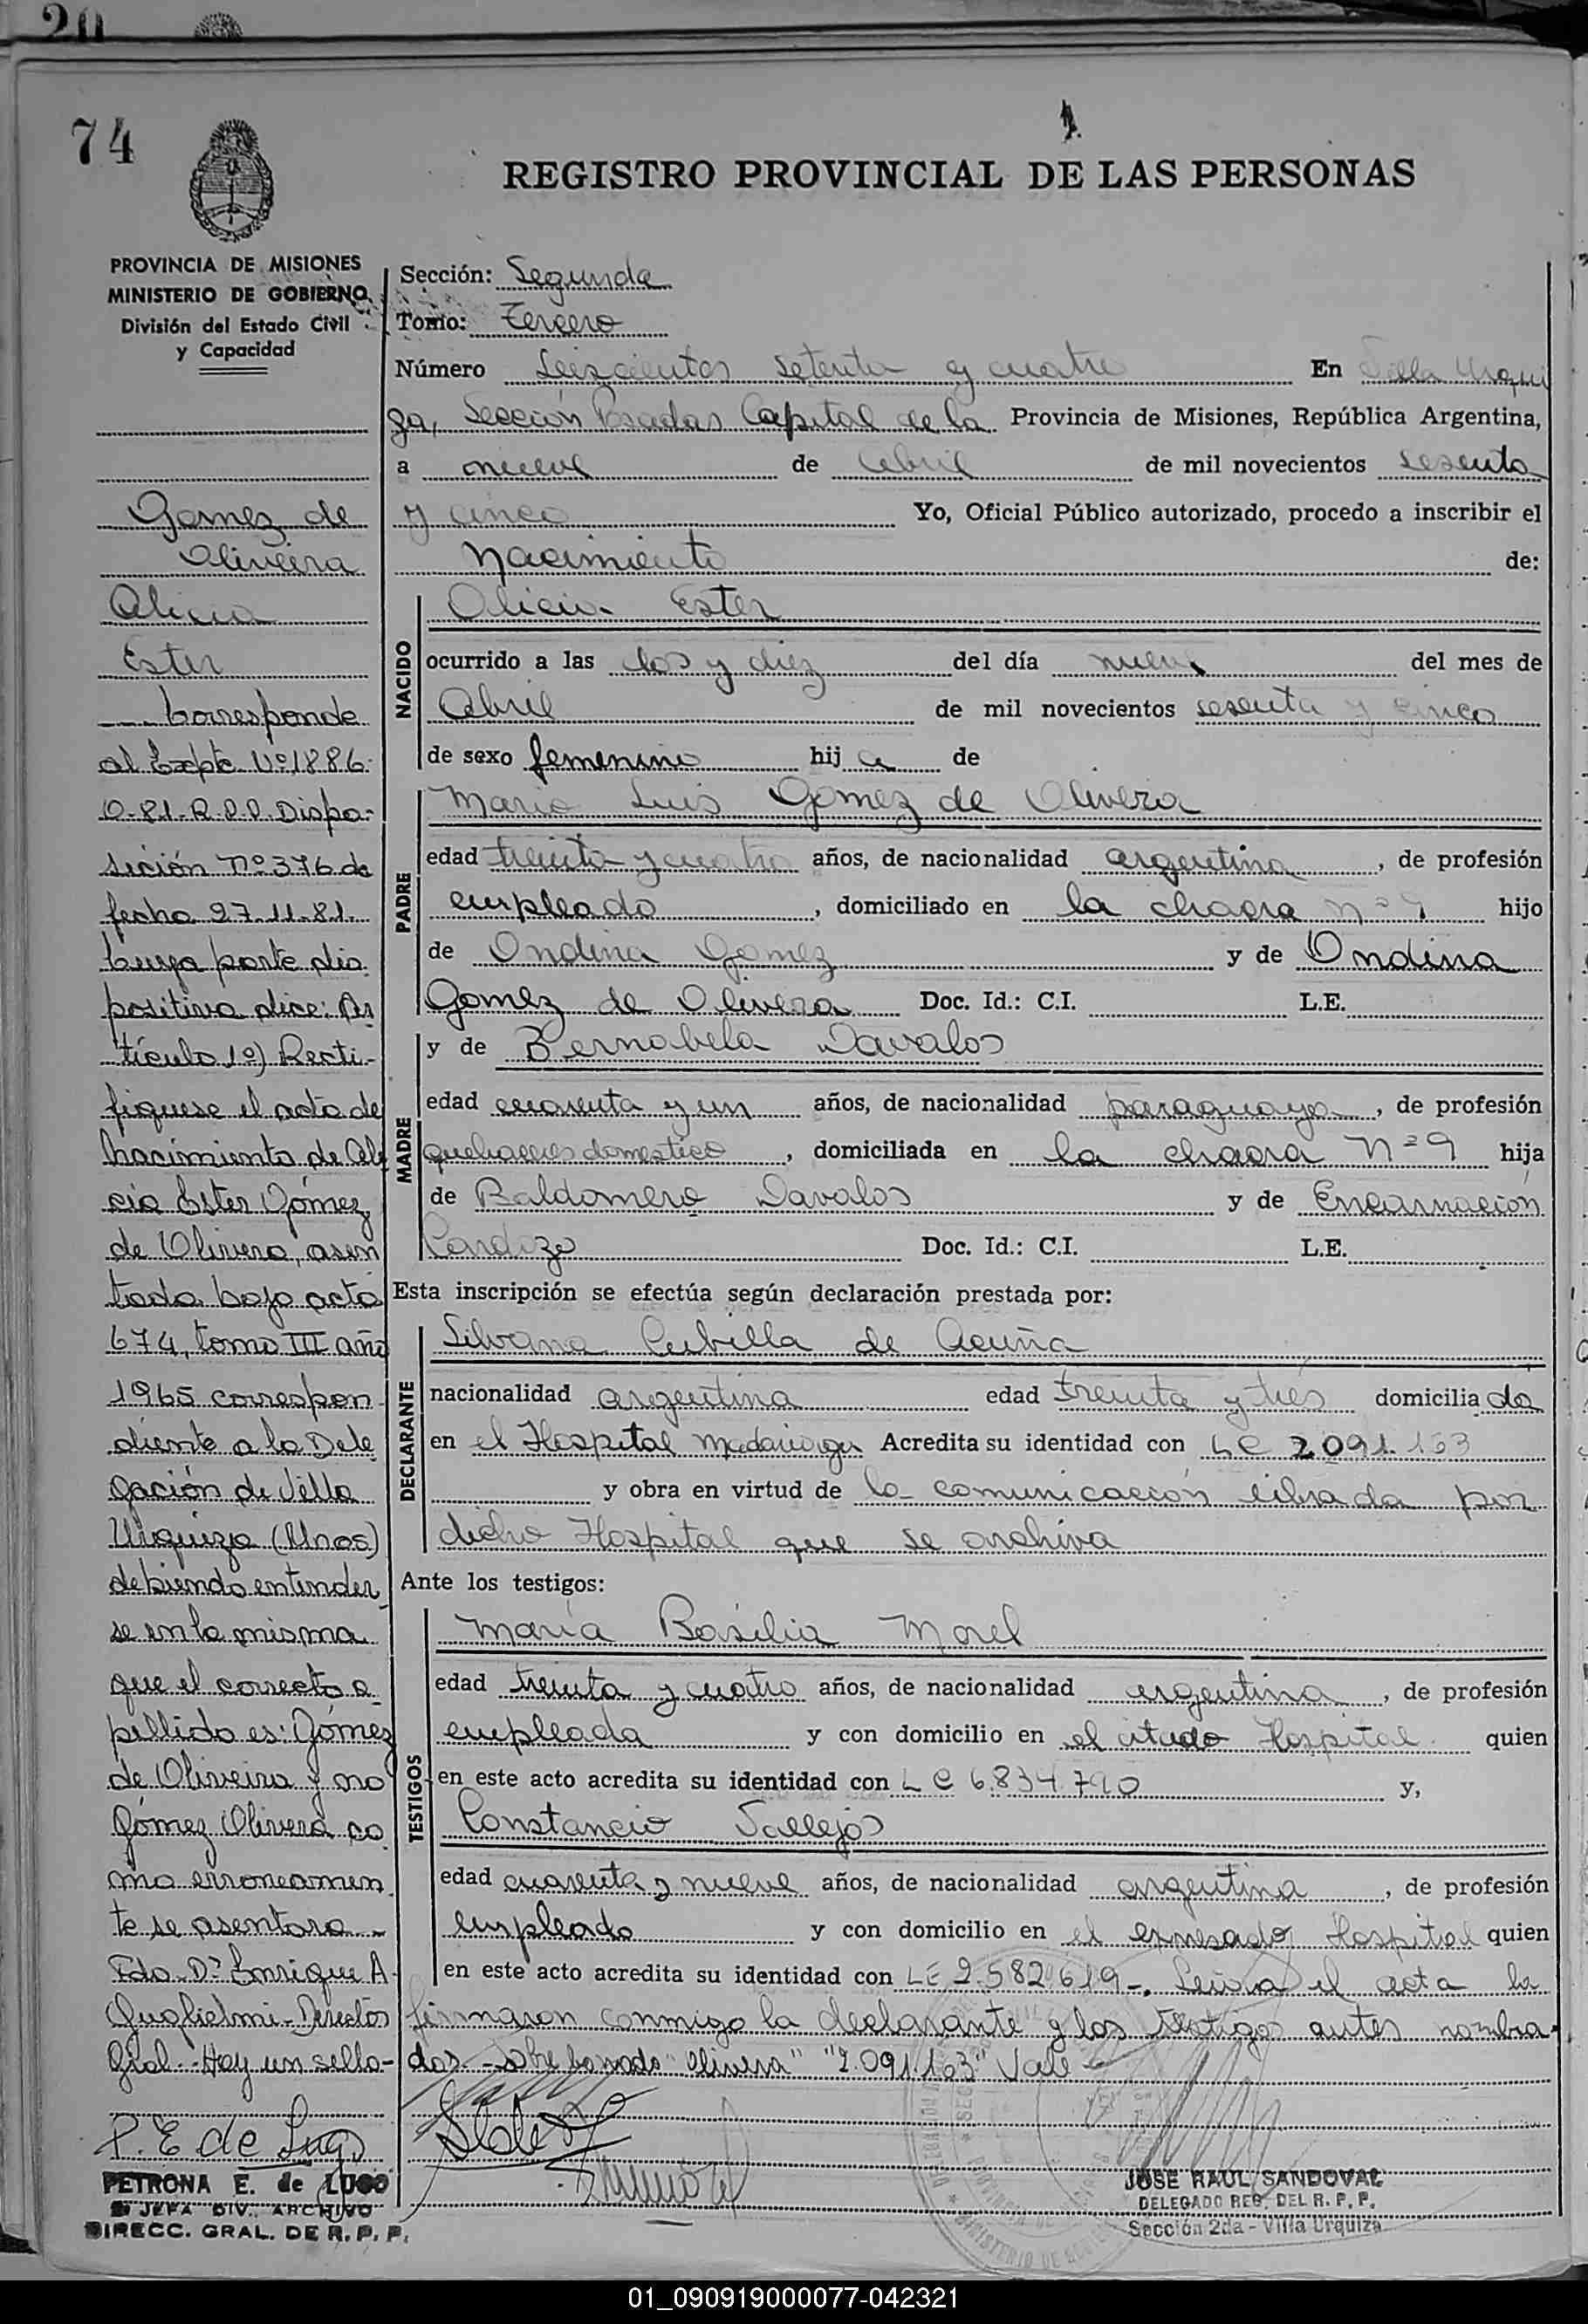 20
74
REGISTRO PROVINCIAL DE LAS PERSONAS
PROVINCIA DE MISIONES
MINISTERIO DE GOBIERNO
División del Estado Civil
y Capacidad
Gomez de
Oliveira
Alicia
Ester
Corresponde
al Expte Nº 1886-
O-81-R.P.P. Dispo-
sición Nº 376 de
fecha 27.11.81.
Cuya parte dis
positiva dice: Ar
tículo 1º) Recti-
fiquese el acta de
nacimiento de Ali
cia Ester Gómez
de Olivera, asen
tada bajo acta
674, tomo III año
1965 correspon
diente a la Dele
gación de Villa
Urquiza (Mnes)
debiendo entender
se en la misma
que el correcto a
pellido es: Gómez
de Oliveira y no
Gómez Olivera co
mo erroneamen
te se asentara -
Fdo. Dr Enrique A
Guglielmi - Director
Gral. Hay un sello-
P. E de Lugo
PETRONA E. de LUGO
JEFA DIV. ARCHIVO
DIRECC. GRAL. DE R. P. P.
Sección: Segunda
Tomo: Tercero
Número Seiscientos setenta y cuatro En Villa Urqui
za, Sección Posadas Capital de la Provincia de Misiones, República Argentina,
a nueve de abril de mil novecientos sesenta
y cinco Yo, Oficial Público autorizado, procedo a inscribir el
Nacimiento de:
NACIDO
Alicia Ester
ocurrido a las dos y diez del día nueve del mes de
Abril de mil novecientos sesenta y cinco
de sexo femenino hij a de
PADRE
Mario Luis Gomez de Olivera
edad treinta y cuatro años, de nacionalidad argentina, de profesión
empleado, domiciliado en la chacra nº 9 hijo
de Ondina Gomez y de Ondina
Gomez de Olivera Doc. Id.: C.I. L.E.
MADRE
y de Bernabela Davalos
edad cuarenta y un años, de nacionalidad paraguaya, de profesión
quehaceres domestico, domiciliada en la chacra Nº 9 hija
de Baldomero Davalos y de Encarnación
Cardozo Doc. Id.: C.I. L.E.
Esta inscripción se efectúa según declaración prestada por:
DECLARANTE
Silvana Cubilla de Acuña
nacionalidad argentina edad treinta y tres domicilia da
en el Hospital Madariaga Acredita su identidad con LC 2.091.163
y obra en virtud de la comunicación librada por
dicho Hospital que se archiva
Ante los testigos:
TESTIGOS
María Basilia Morel
edad treinta y cuatro años, de nacionalidad argentina, de profesión
empleada y con domicilio en el citado Hospital quien
en este acto acredita su identidad con LC 6.834.790 y,
Constancio Vallejos
edad cuarenta y nueve años, de nacionalidad argentina, de profesión
empleado y con domicilio en el expresado Hospital quien
en este acto acredita su identidad con LE 2.582.619-. Leida el acta la
firmaron conmigo la declarante y los testigos antes nombra
dos. - Sobre borrado "Olivera" "2.091.163" Vale
JOSE RAUL SANDOVAL
DELEGADO REG. DEL R. P. P.
Sección 2da - Villa Urquiza
01_090919000077-042321